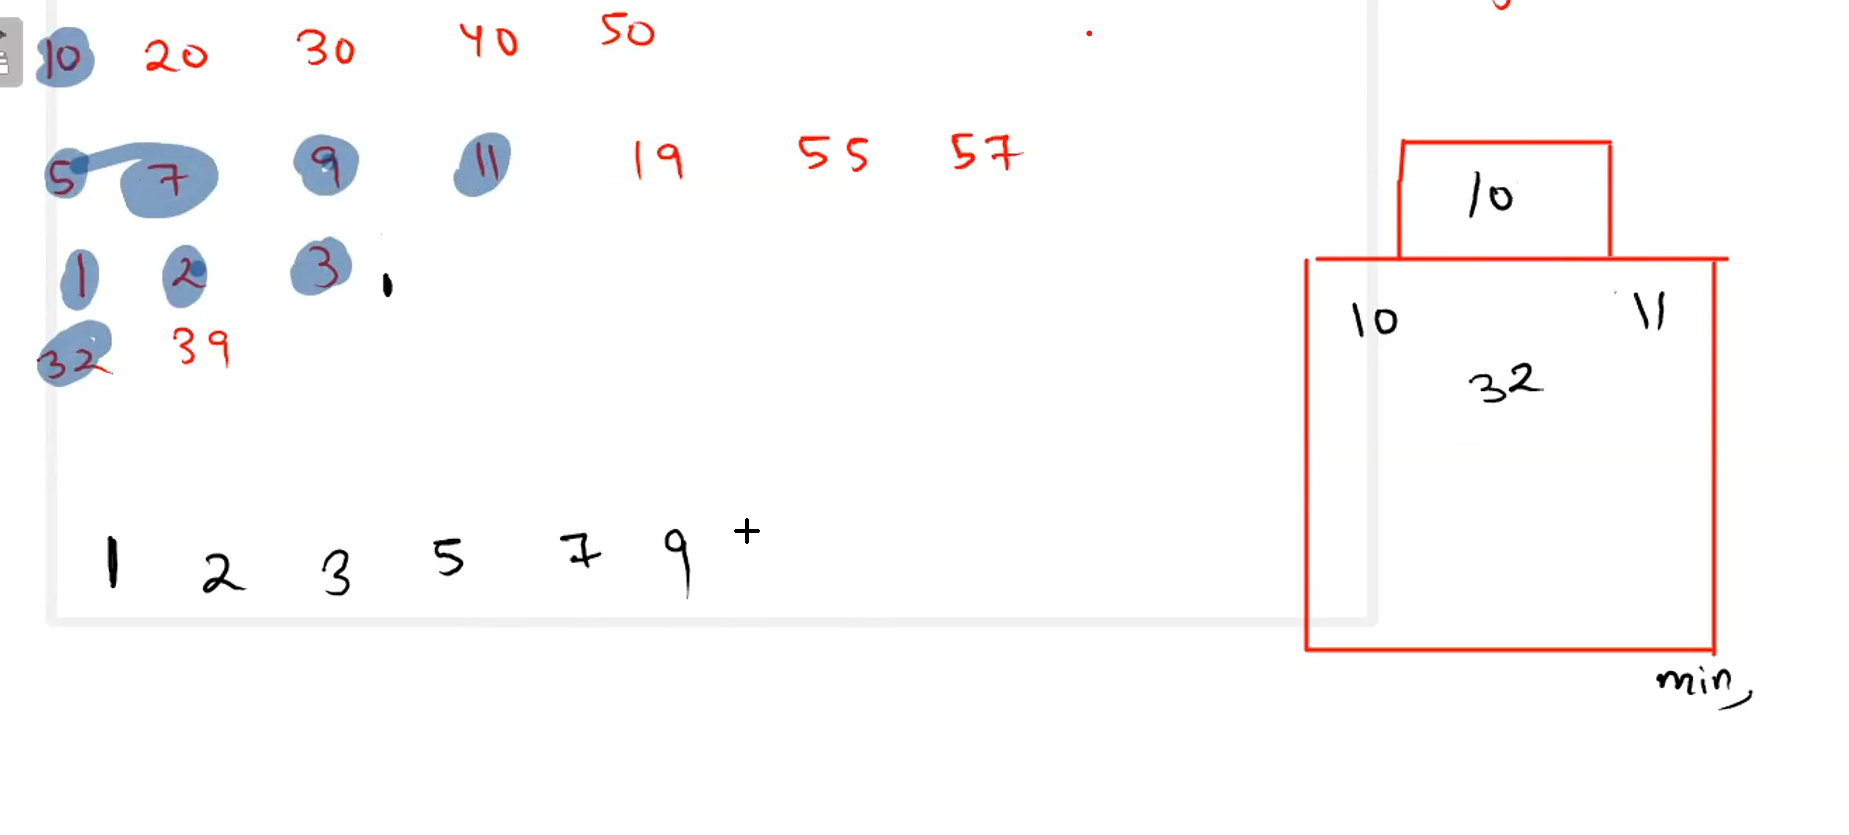 10 20 30 40 50
5 7 9 11 19 55 57
1 2 3
32 39
1 2 3 5 7 9
10
10 11
32
min